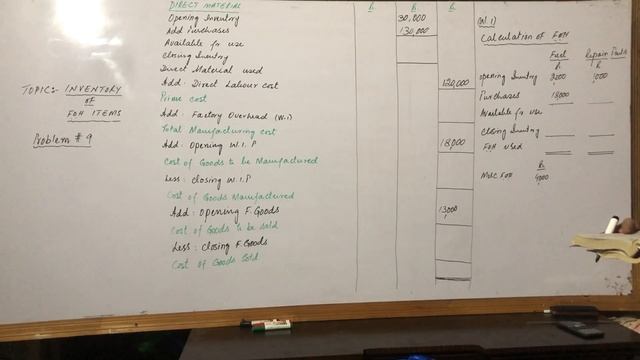 TOPIC:- INVENTORY
OF
FOH ITEMS
Problem # 9
DIRECT MATERIAL R R R
Opening Inventory 30,000
Add Purchases 130,000
Available for use
Closing Inventory
Direct Material used
Add: Direct Labour cost 120,000
Prime cost
Add: Factory Overhead (W-1)
Total Manufacturing cost
Add: Opening W.I.P 18,000
Cost of Goods to be Manufactured
Less: closing W.I.P
Cost of Goods Manufactured
Add: Opening F.Goods 13,000
Cost of Goods to be sold
Less: Closing F.Goods
Cost of Goods Sold
(W.1)
Calculation of FOH
Fuel Repair Parts
R R
opening Inventory
Purchases 18,000
Available for use
Closing Inventory
FOH used
R
Misc FOH